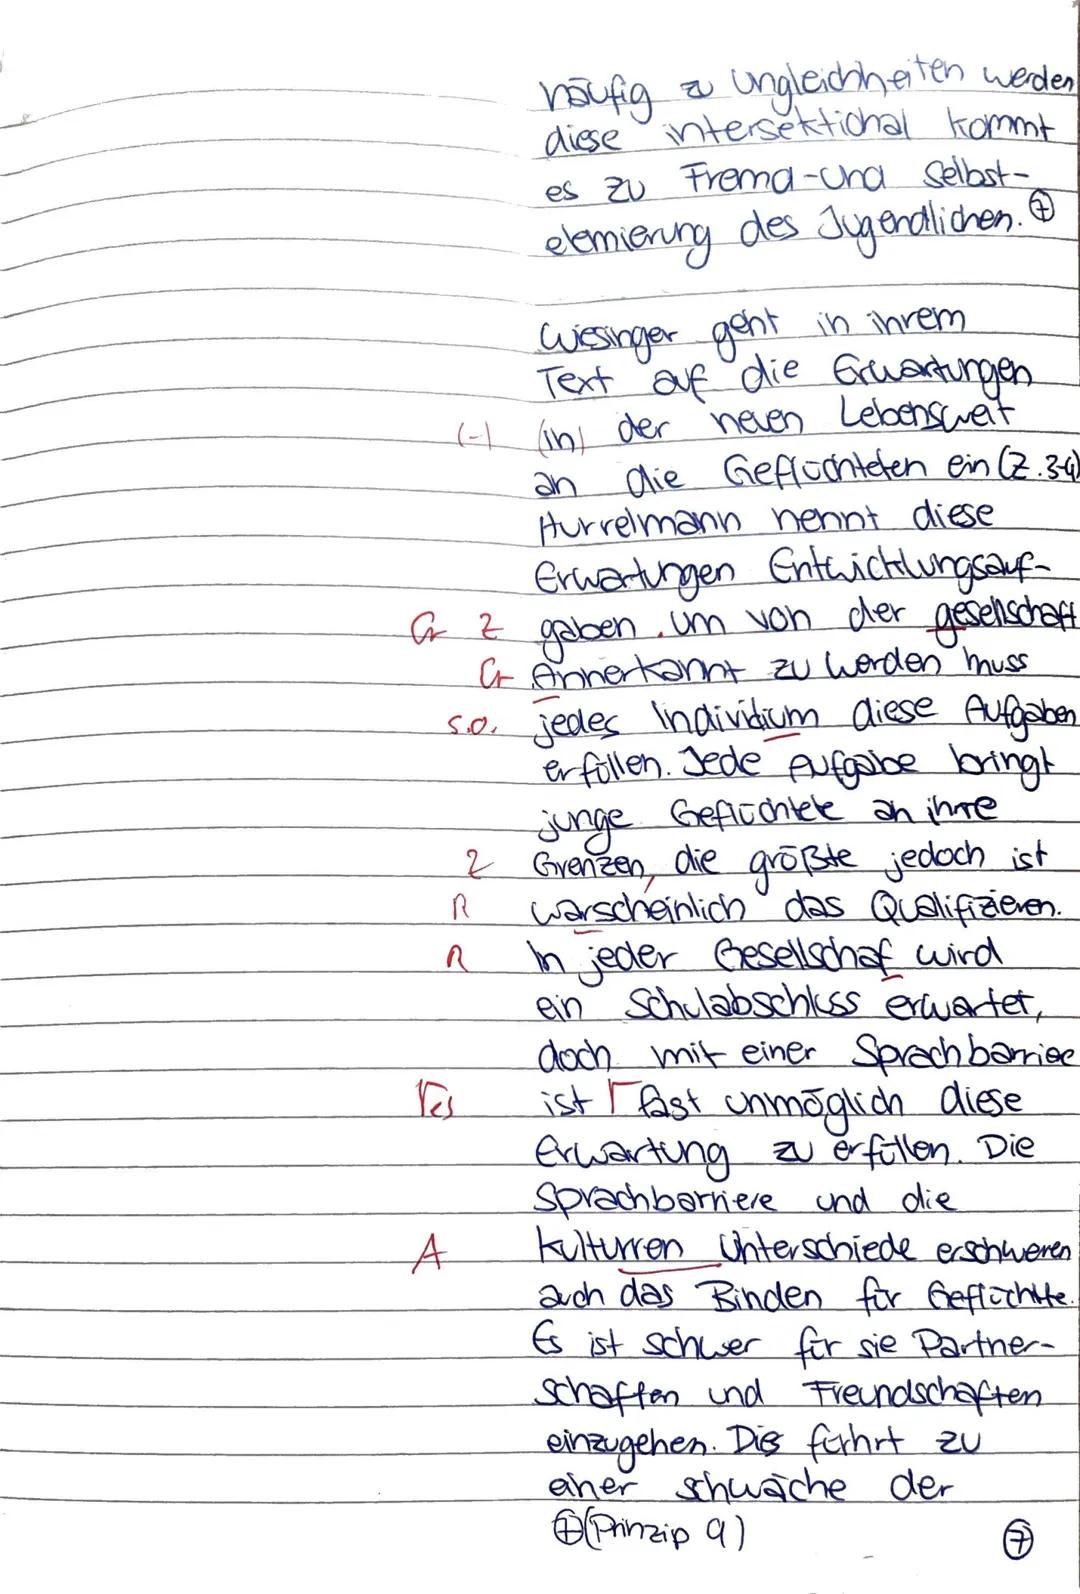 häufig zu Ungleichheiten werden
diese intersektional kommt
es zu Fremd-und Selbst-
elemierung des Jugendlichen. ⊕
Wiesinger geht in ihrem
Text auf die Erwartungen
(-) (in) der neuen Lebenswelt
an die Geflüchteten ein (Z.3-4)
Hurrelmann nennt diese
Erwartungen Entwicklungsauf-
Gr Z gaben. um von der gesellschaft
Gr Annerkannt zu werden muss
s.o. jedes Individium diese Aufgaben
erfüllen. Jede Aufgabe bringt
junge Geflüchtete an ihre
Z Grenzen, die größte jedoch ist
R warscheinlich das Qualifizieren.
R In jeder Gesellschaf wird
ein Schulabschluss erwartet,
doch mit einer Sprachbarriee
Γes ist Γ fast unmöglich diese
Erwartung zu erfüllen. Die
Sprachbarriere und die
A kulturren Unterschiede erschweren
auch das Binden für Geflüchtte.
Es ist schwer für sie Partner-
schaften und Freundschaften
einzugehen. Dis führt zu
einer schwäche der
⊕(Prinzip 9) ⑦